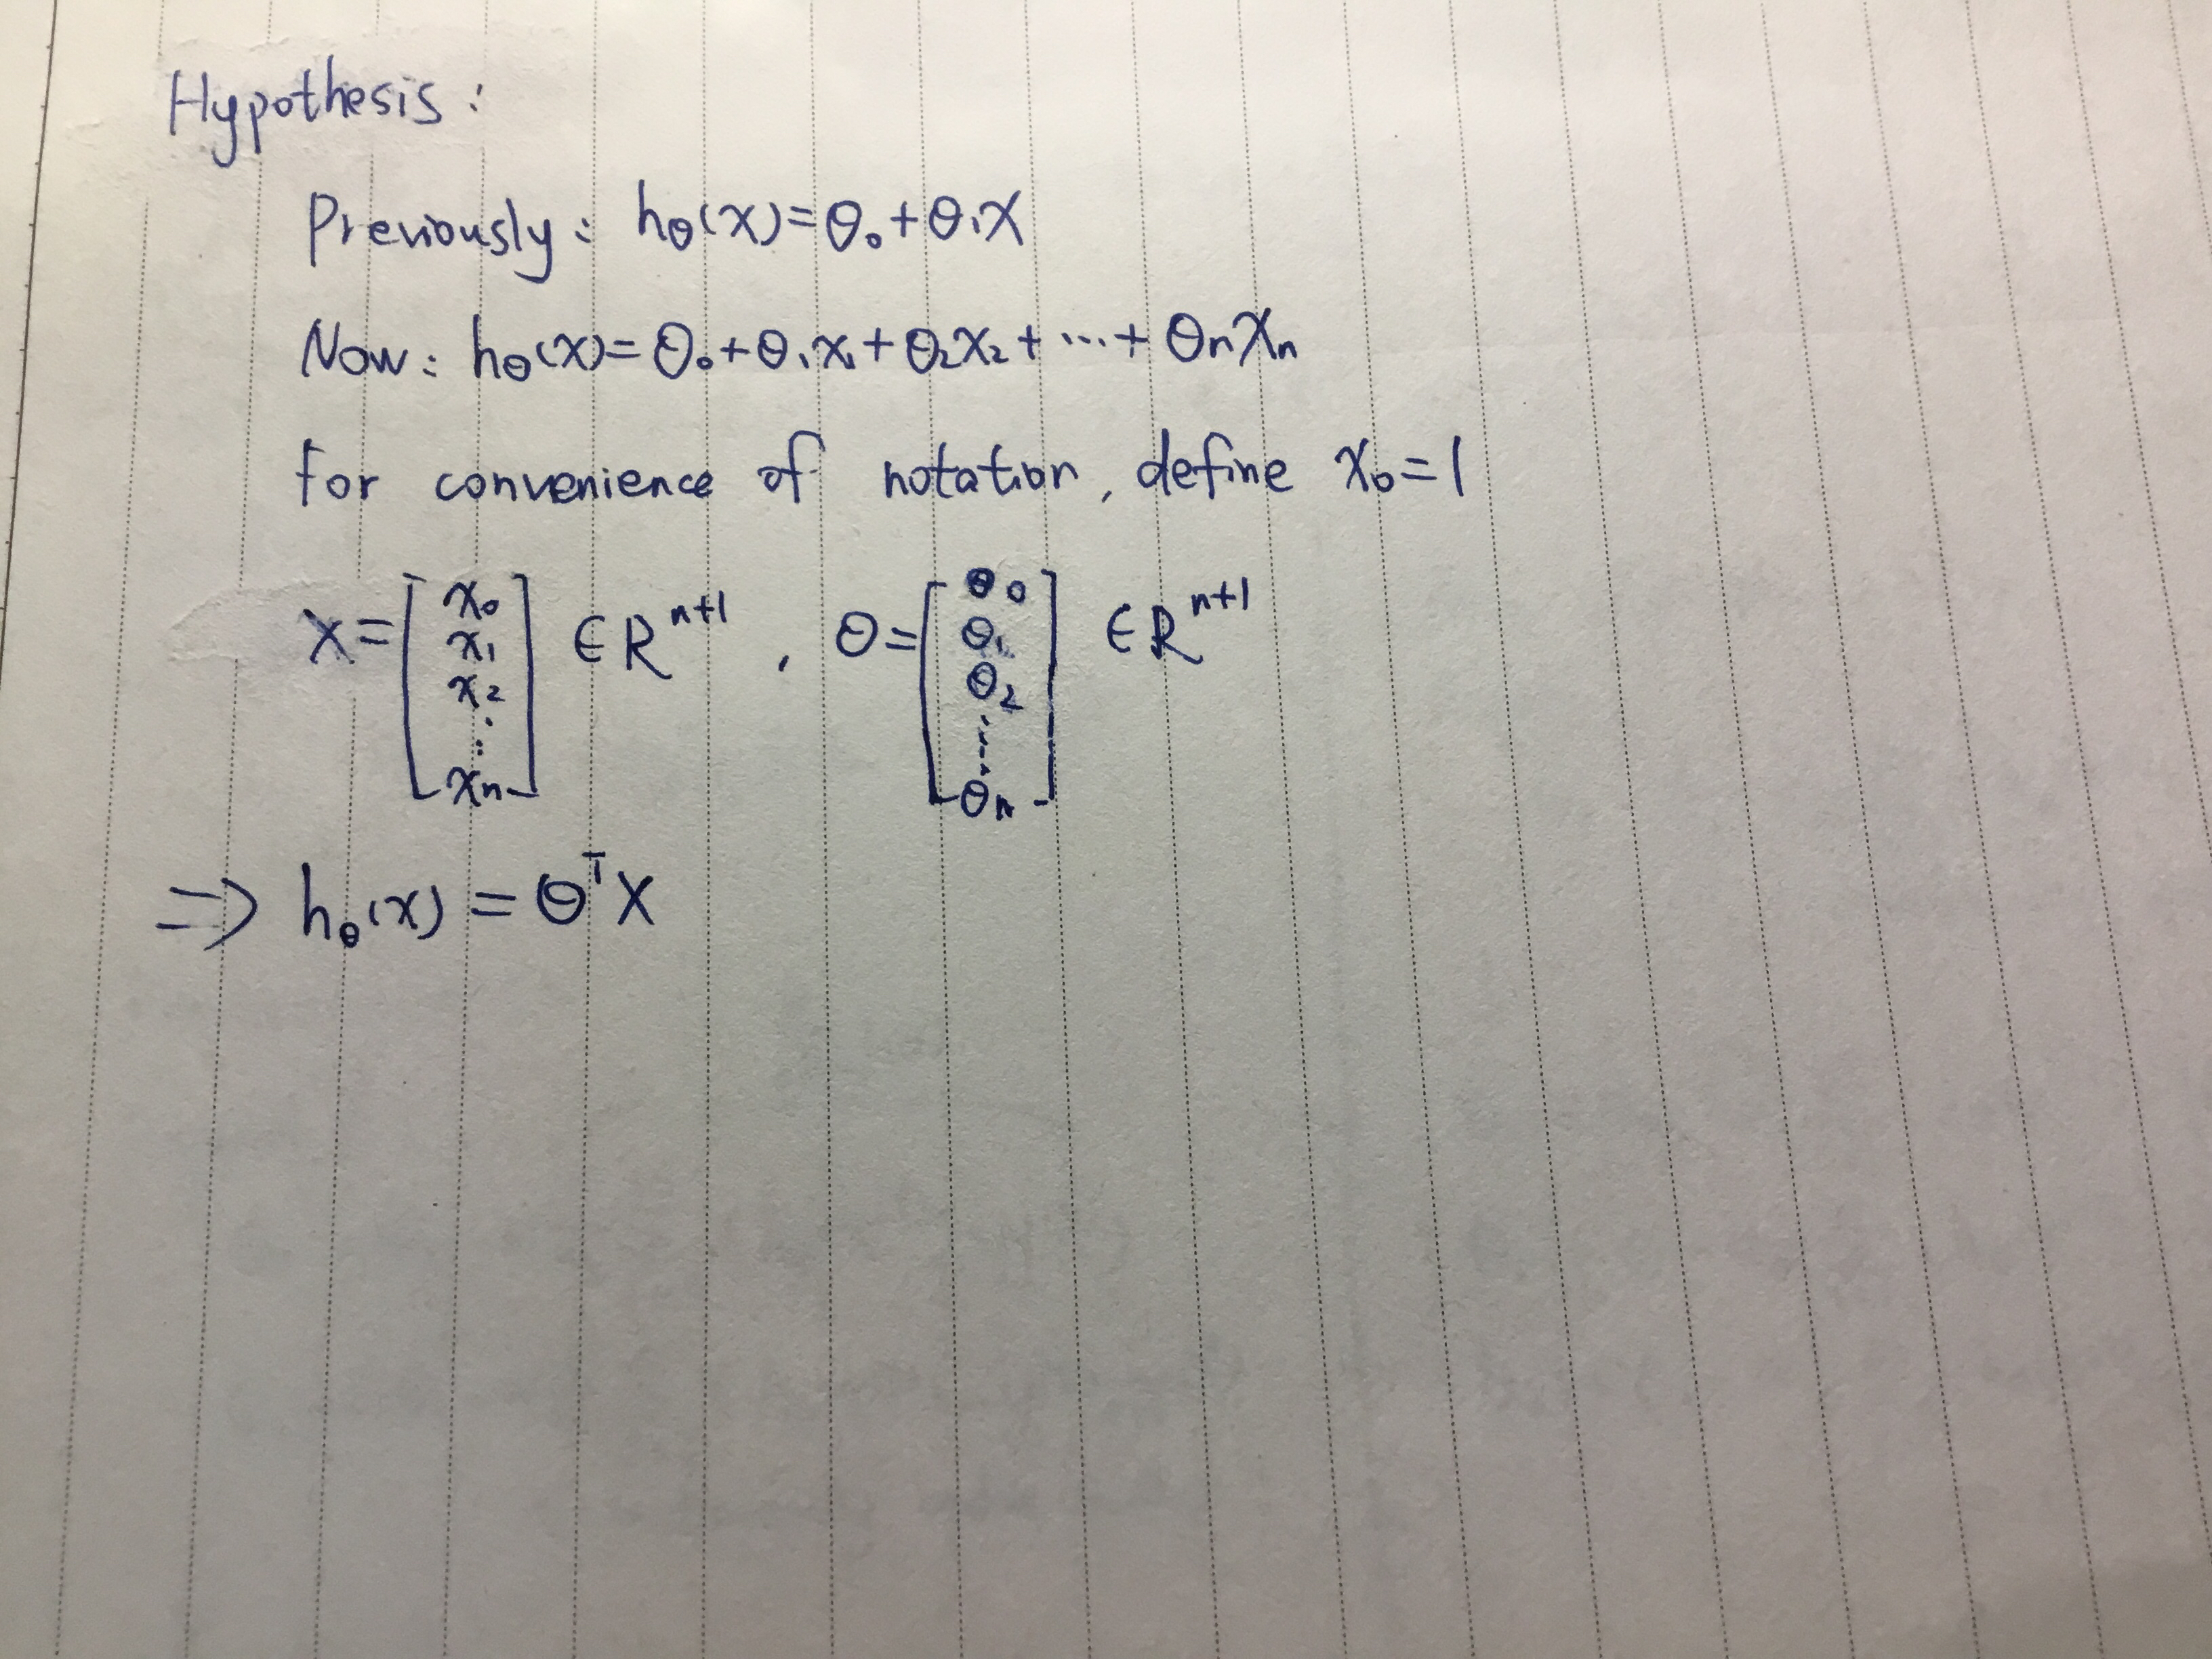 Hypothesis:
Previously: hθ(x)=θ₀+θ₁x
Now: hθ(x)=θ₀+θ₁x₁+θ₂x₂+⋯+θₙxₙ
for convenience of notation, define x₀=1
x=[x₀ x₁ x₂ ⋮ xₙ] ∈Rⁿ⁺¹, θ=[θ₀ θ₁ θ₂ ⋮ θₙ] ∈Rⁿ⁺¹
⇒ hθ(x) = θᵀx